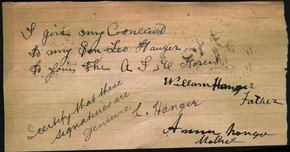 I give my Consent
to my Son Leo Hanger
to Join the A I E Forces
William Hanger
Father
I certify that these
signatures are
genuine L. Hanger
Annie Hanger
Mother